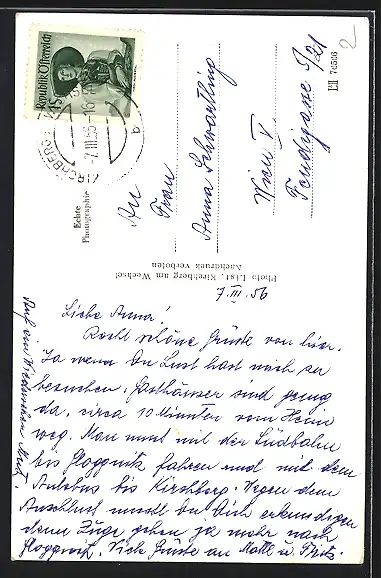 Republik Österreich
KIRCHBERG
-7.III.56-16
a
2
70566
Echte
Photographie
An
Frau
Anna Schwartling
Wien V.
Fendigasse 5/21
Photo List, Kirchberg am Wechsel
Nachdruck verboten
7. III. 56
Liebe Anna!
Recht schöne Grüße von hier.
Ja wenn Du Lust hast mich zu
besuchen. Gasthäuser sind genug
da, circa 10 Minuten vom Heim
weg. Man muss mit der Südbahn
bis Gloggnitz fahren und mit dem
Autobus bis Kirchberg. Wegen dem
Anschluss musst Du Dich erkundigen
denn Züge gehen ja mehr nach
Gloggnitz. Viele Grüße an
Auf ein Wiedersehen